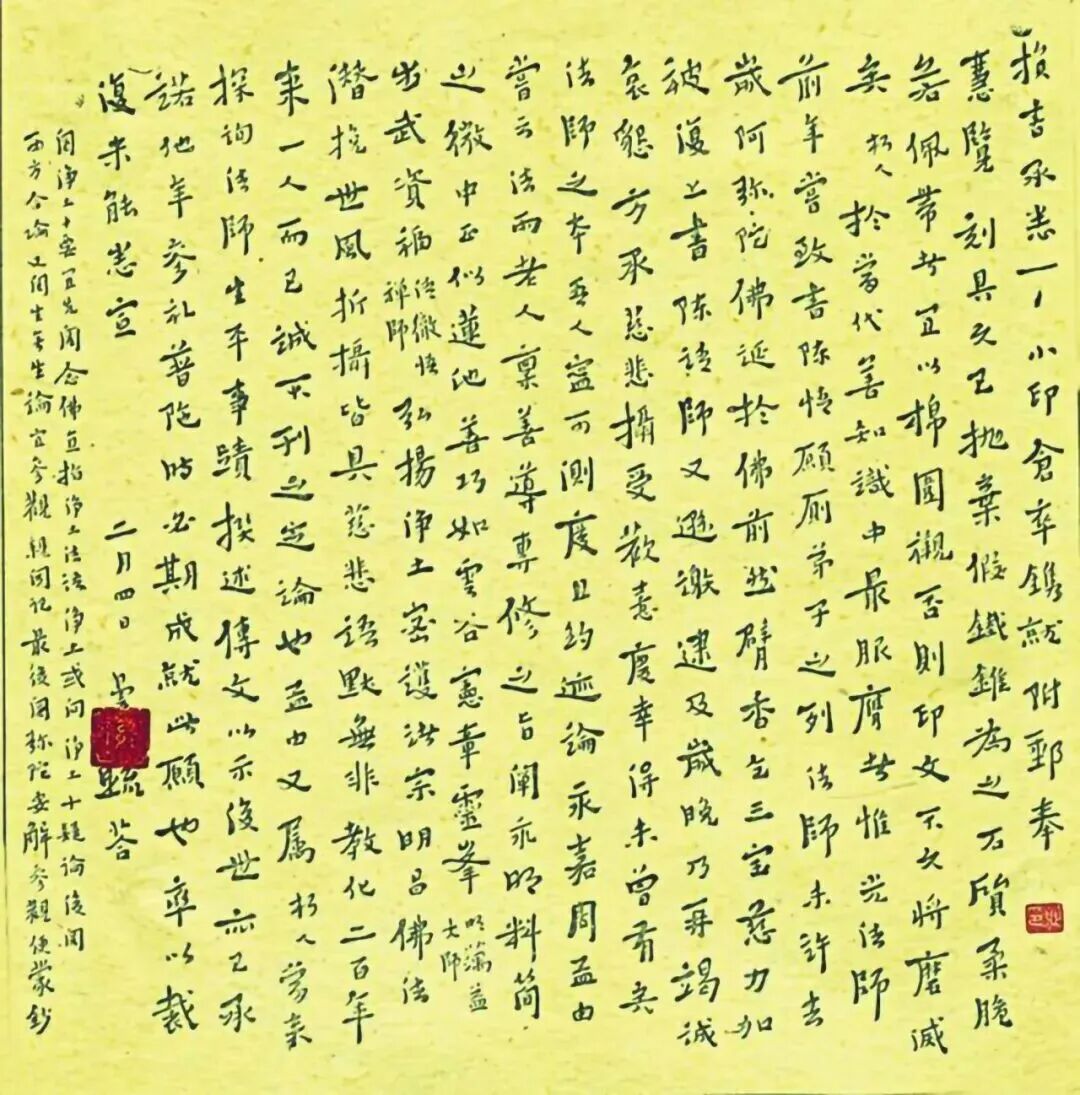 損書承悉一一小印倉卒鐫就附郵奉
慧覽 刻具久已拋棄假鐵錐為之石質柔脆
若佩帶者宜以棉圍襯否則印文不久將磨滅
矣 朽人於當代善知識中最服膺者惟光法師
前年嘗致書陳情願廁弟子之列法師未許去
歲阿弥陀佛誕於佛前然臂香乞三寶慈力加
被復上書陳請師又遜謝逮及歲晚乃再竭誠
哀懇方承慈悲攝受歡喜慶幸得未曾有矣
法師之本吾人寧可測度且約迹論永嘉周孟由
嘗云法雨老人稟善導專修之旨闡永明料簡
之微中正似蓮池善巧如雲谷憲章靈峯明蕅益大師
步武資福清徹悟禪師弘揚淨土密護諸宗明昌佛法
潛挽世風折攝皆具慈悲語默無非教化二百年
來一人而已誠不刊之定論也孟由又屬朽人當來
探詢法師生平事蹟撰述傳文以示後世亦已承
諾他年參礼普陀時必期成就此願也率以裁
復未能悉宣
二月四日 曇 疏答
閱淨土十要宜先閱念佛直指淨土法語淨土或問淨土十疑論後閱
西方合論又閱生無生論宜參觀親聞記最後閱弥陀要解參觀便蒙鈔